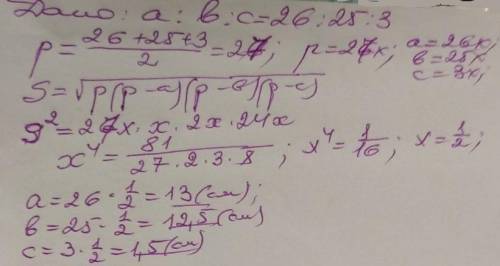 Дано: a : в : c = 26 : 25 : 3
p = (26 + 25 + 3)/2 = 27; p = 27x; a = 26x; в = 25x c = 3x;
S = √p(p-a)(p-в)(p-c)
9² = 27x · x · 2x · 24x
x⁴ = 81/(27 · 2 · 3 · 8); x⁴ = 1/16; x = 1/2;
a = 26 · 1/2 = 13 (см);
в = 25 · 1/2 = 12,5 (см)
c = 3 · 1/2 = 1,5 (см)